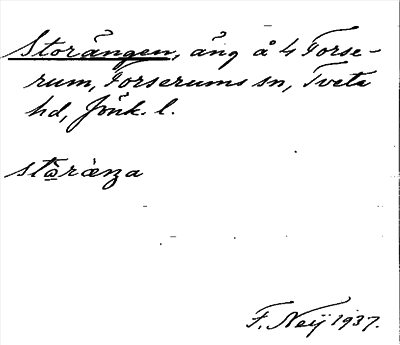 Storängen, äng å 4 Forse-
rum, Forserums sn, Tveta
hd, Jönk. l.
F. Neij 1937.